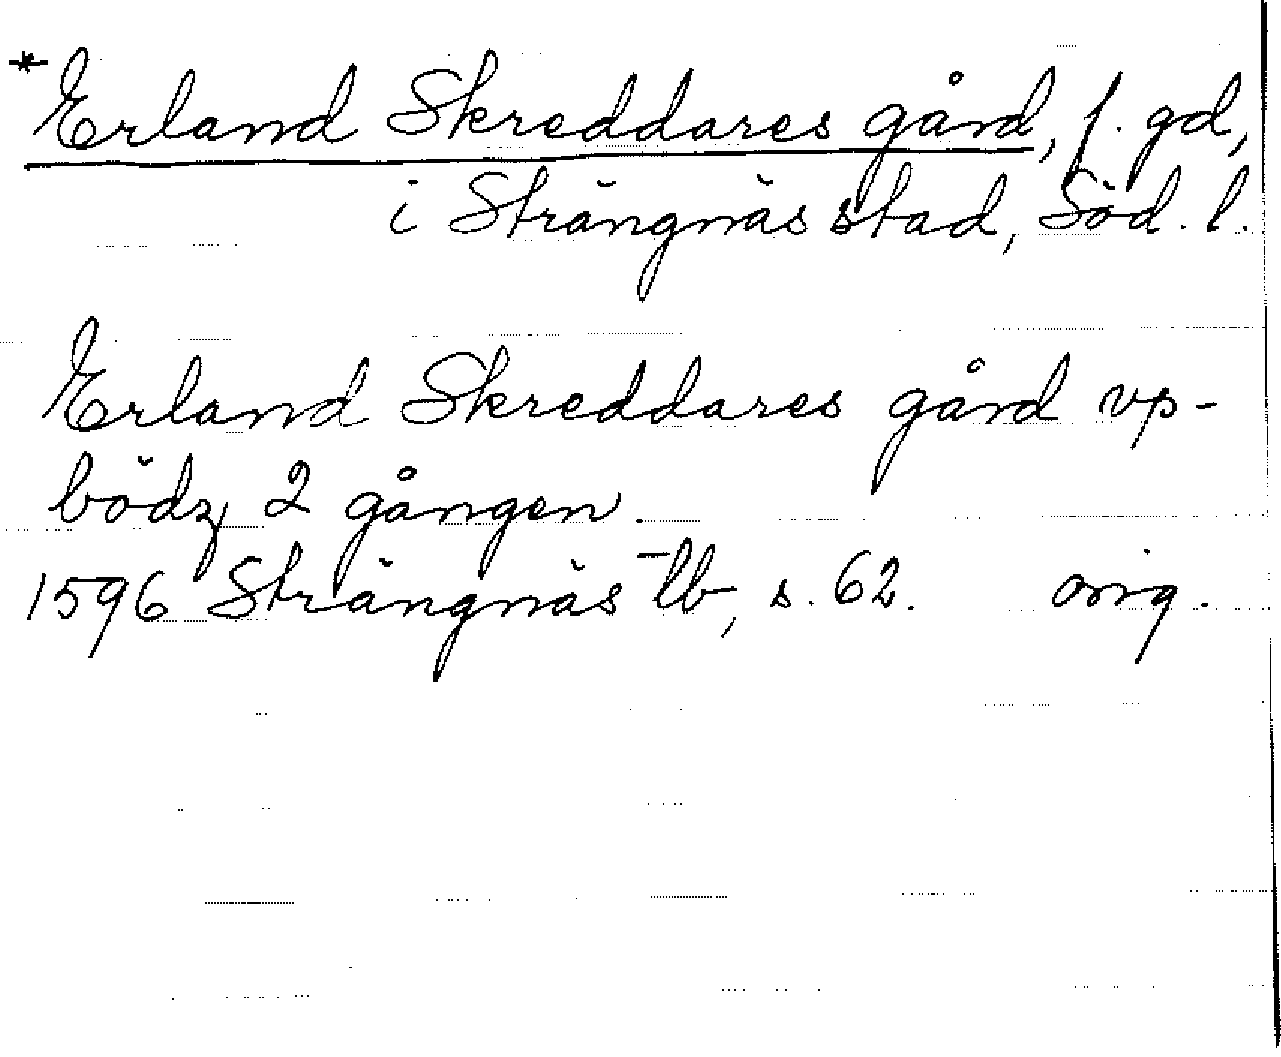 *Erland Skreddares gård, f. gd,
i Strängnäs stad, Söd. l.
Erland Skreddares gård vp-
bödz 2 gången.
1596 Strängnäs tb, s. 62. orig.